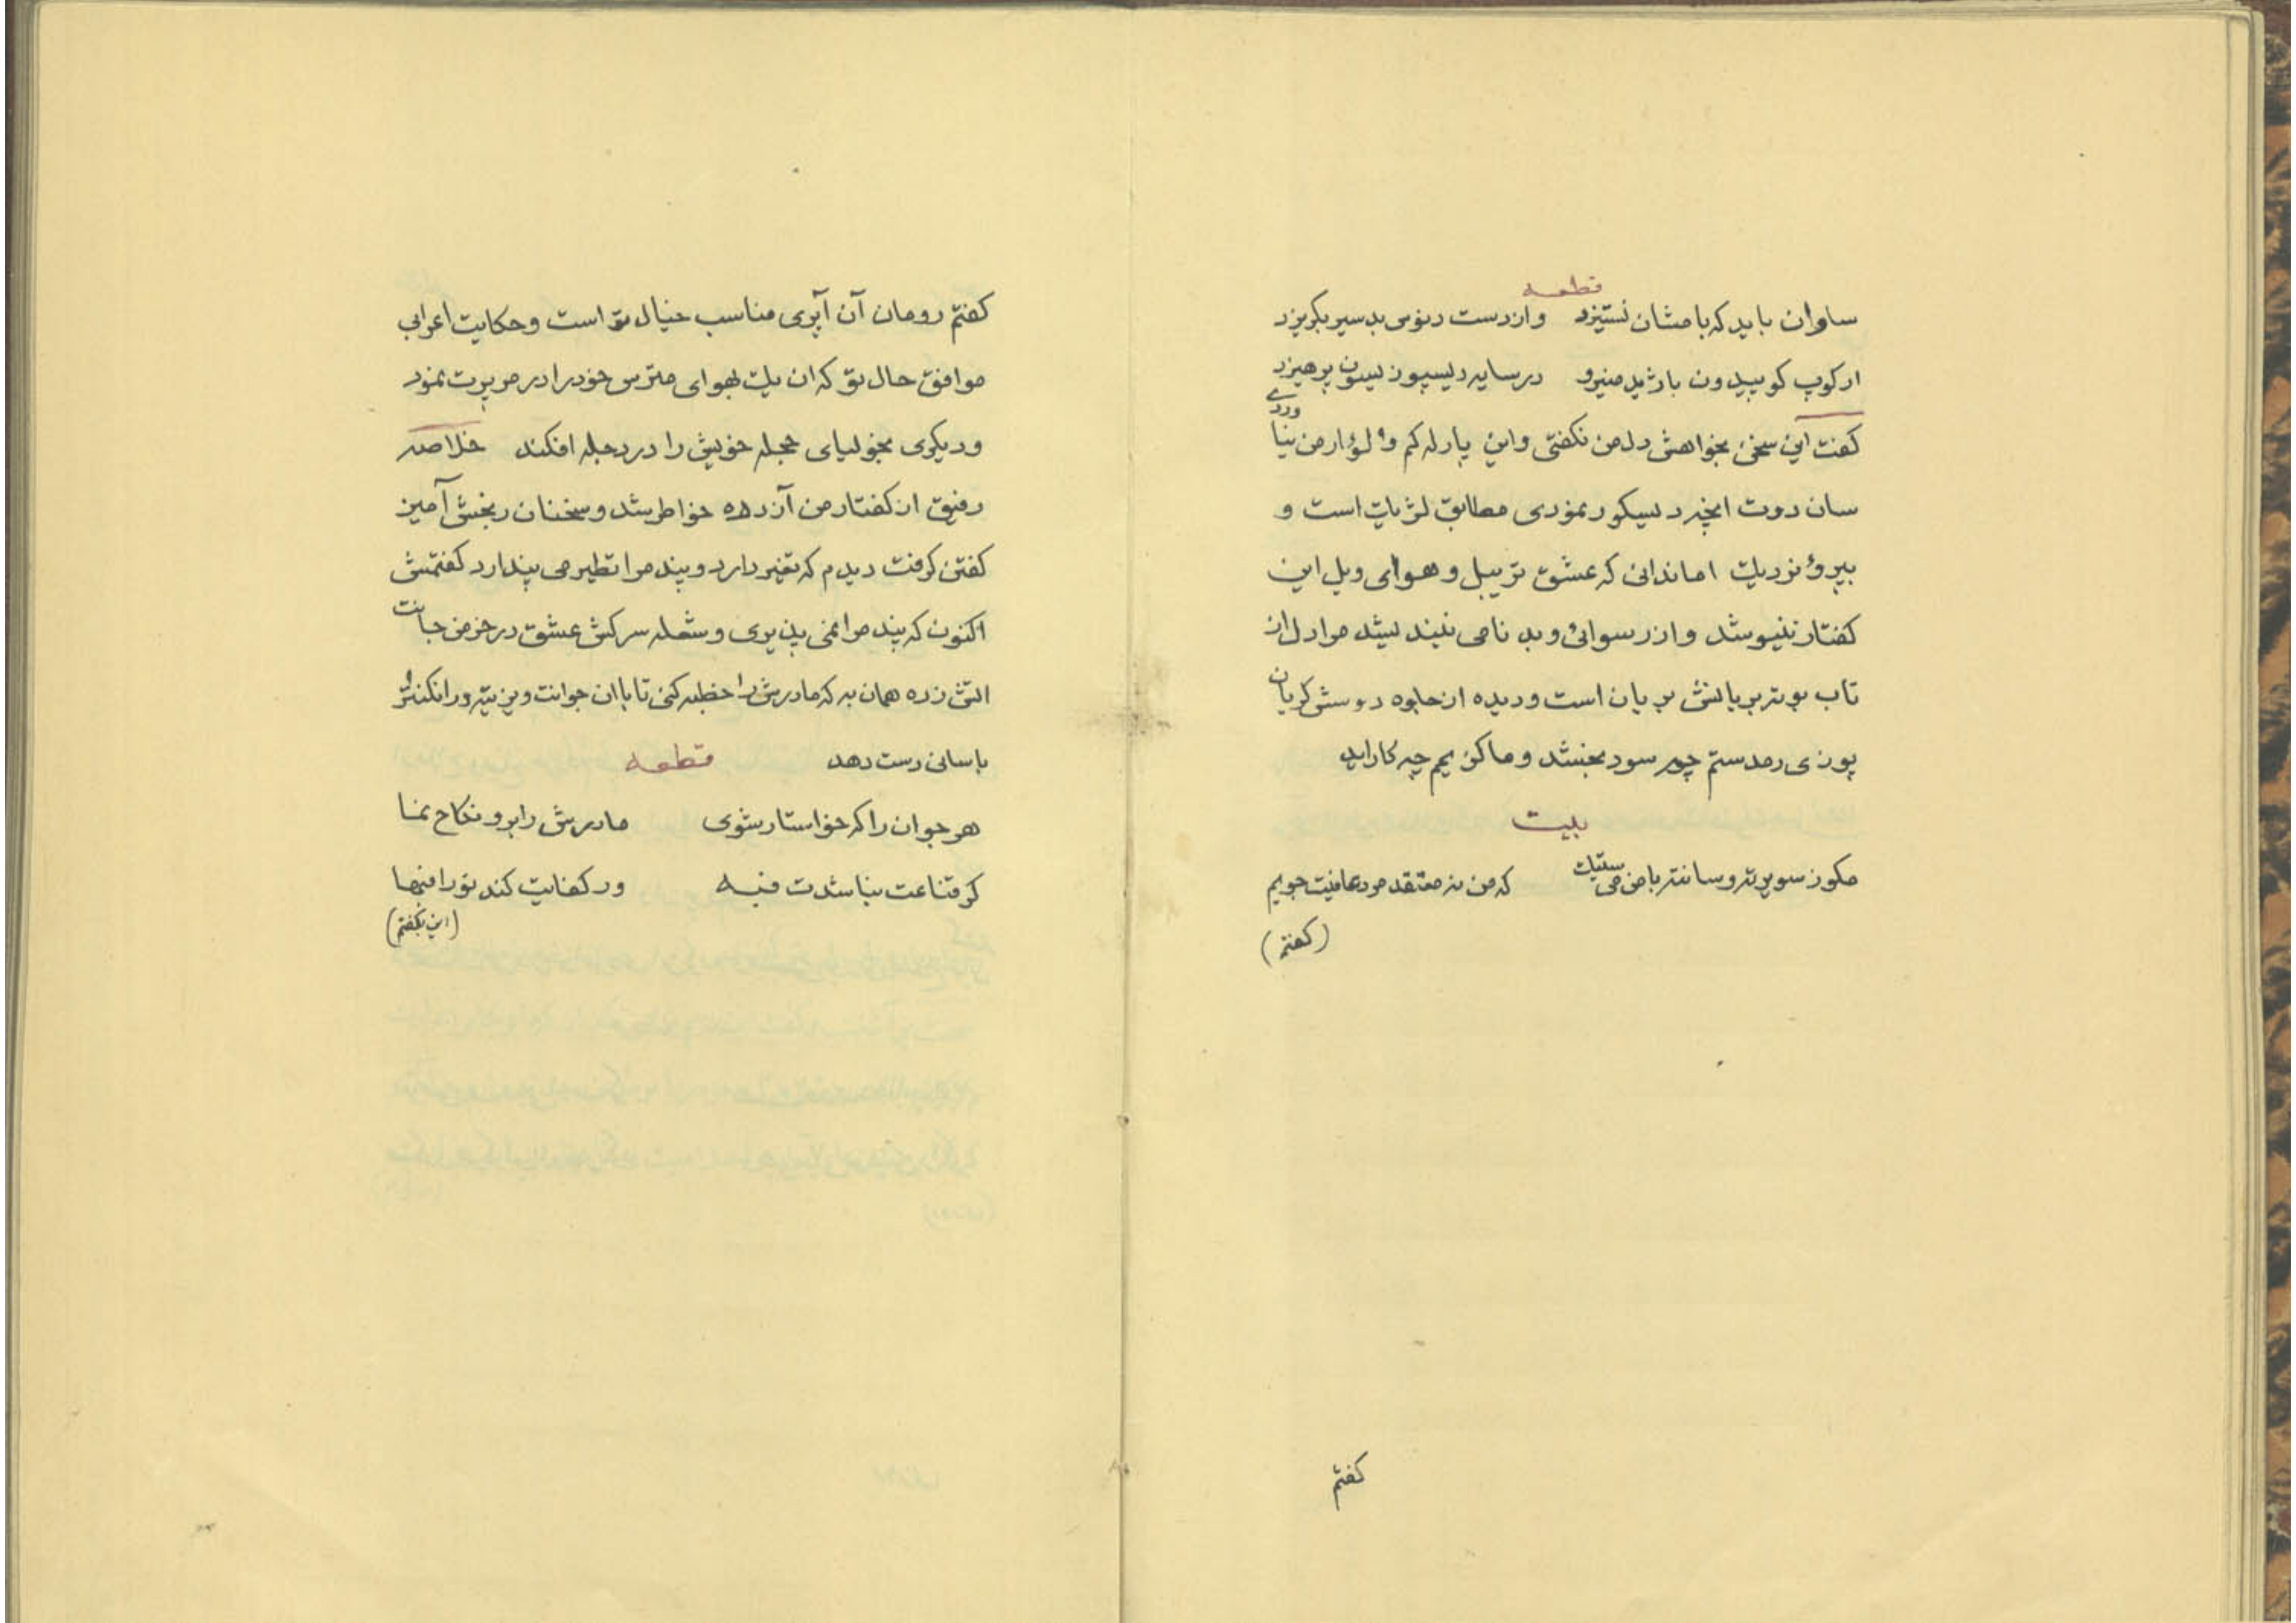 قطعه
ساوان باید که با مشان نستیزد وازدست دنوس بد سیر بگریزد
از کوپ کوپیدون بارژید مینرو در سایه دیسپوز لیسون پرهیزد
کفت این سخن بخواهش دل من نکفتی واین پارله کم و لوار من نیا وردے
سان دوت انچه دیسکور نمودی مطابق لژیک است و
پیرو نزدیک اما ندانی که عشق تریبل و هوای ویل این
کفتار ننیوشد و از رسوائی و بد نامی نیندیشد مرا دل از
تاب بوتر بریا تنش بریان است و دیده از جلوه دوستش کریان
پوزی رمدستم چه سود بخشد و ماکزیم چه کار اید
بیت
مکوز سوبرته و سانته با من می ستیک که من نه معتقد مرد عافیت جویم
(کفتم)
کفتم
کفتم رومان آن آپری مناسب خیال تو است و حکایت اعرابی
موافق حال تو که ان یک بهوای مترس خود را در مربرت نمود
و دیکری بخولیای عجله خویش را در دجله افکند خلاصه
رفیق از کفتار من آزرده خاطر شد و سخنان رنجش آمیز
کفتن کرفت دیدم که تغیر دارد و پند مرا تطیر می پندارد کفتمش
اکنون که پند مرا نمی پذیری و شعله سرکش عشق در خرمن جانت
اتش زده همان به که مادرش را خطبه کنی تا با ان جوانت ویزیته و رانکنتر
باسانی دست دهد قطعه
هر جوان را که خواستار شوی مادرش را برو نکاح نما
کر قناعت بنا شدت فبه ور کفایت کند تو را فبها
(این بکفتم)